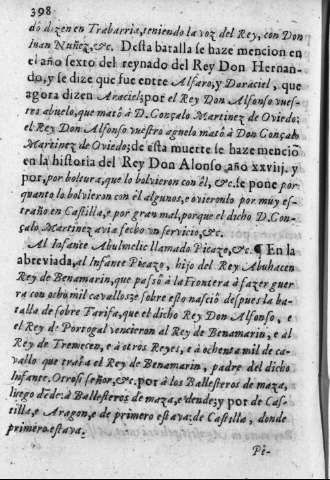 398
dò dizen en Trabarria, teniendo la voz del Rey, con Don
Iuan Nuñez, &c. Desta batalla se haze mencion en
el año sexto del reynado del Rey Don Hernan-
do, y se dize que fue entre Alfaro, y Daraciel, que
agora dizen Araciel; por el Rey Don Alfonso vues-
tro abuelo, que matò à D. Gonçalo Martinez de Oviedo;
el Rey Don Alfonso vuestro aguelo matò à Don Gonçalo
Martinez de Oviedo; de esta muerte se haze menciō
en la historia del Rey Don Alonso año xxviij. y
por, por boltura, que lo bolvieron con èl, &c. se pone por
quanto lo bolvieron con èl algunos, e ovieronlo por muy es-
traño en Castilla, e por gran mal, porque el dicho D. Con-
çalo Martinez avia fecho un servicio, &c.
Al Infante Abulmelic llamado Picazo, &c. ¶ En la
abreviada, al Infante Picazo, hijo del Rey Abuhacen
Rey de Benamarin, que passò à la Frontera à fazer guer-
ra con ocho mil cavallos; e sobre esto nasciò despues la ba-
talla de sobre Tarifa, que el dicho Rey Don Alfonso, e
el Rey de Portogal vencieron al Rey de Benamarin, e al
Rey de Tremecen, e à otros Reyes, e à ochenta mil de ca-
vallo que traìa el Rey de Benamarin, padre del dicho
Infante. Otrosi señor, &c. por à los Ballesteros de maza,
luego dède: à Ballesteros de maza, e dende; y por de Cas-
tilla, e Aragon, e de primero estava: de Castilla, donde
primero estava.
Pe-